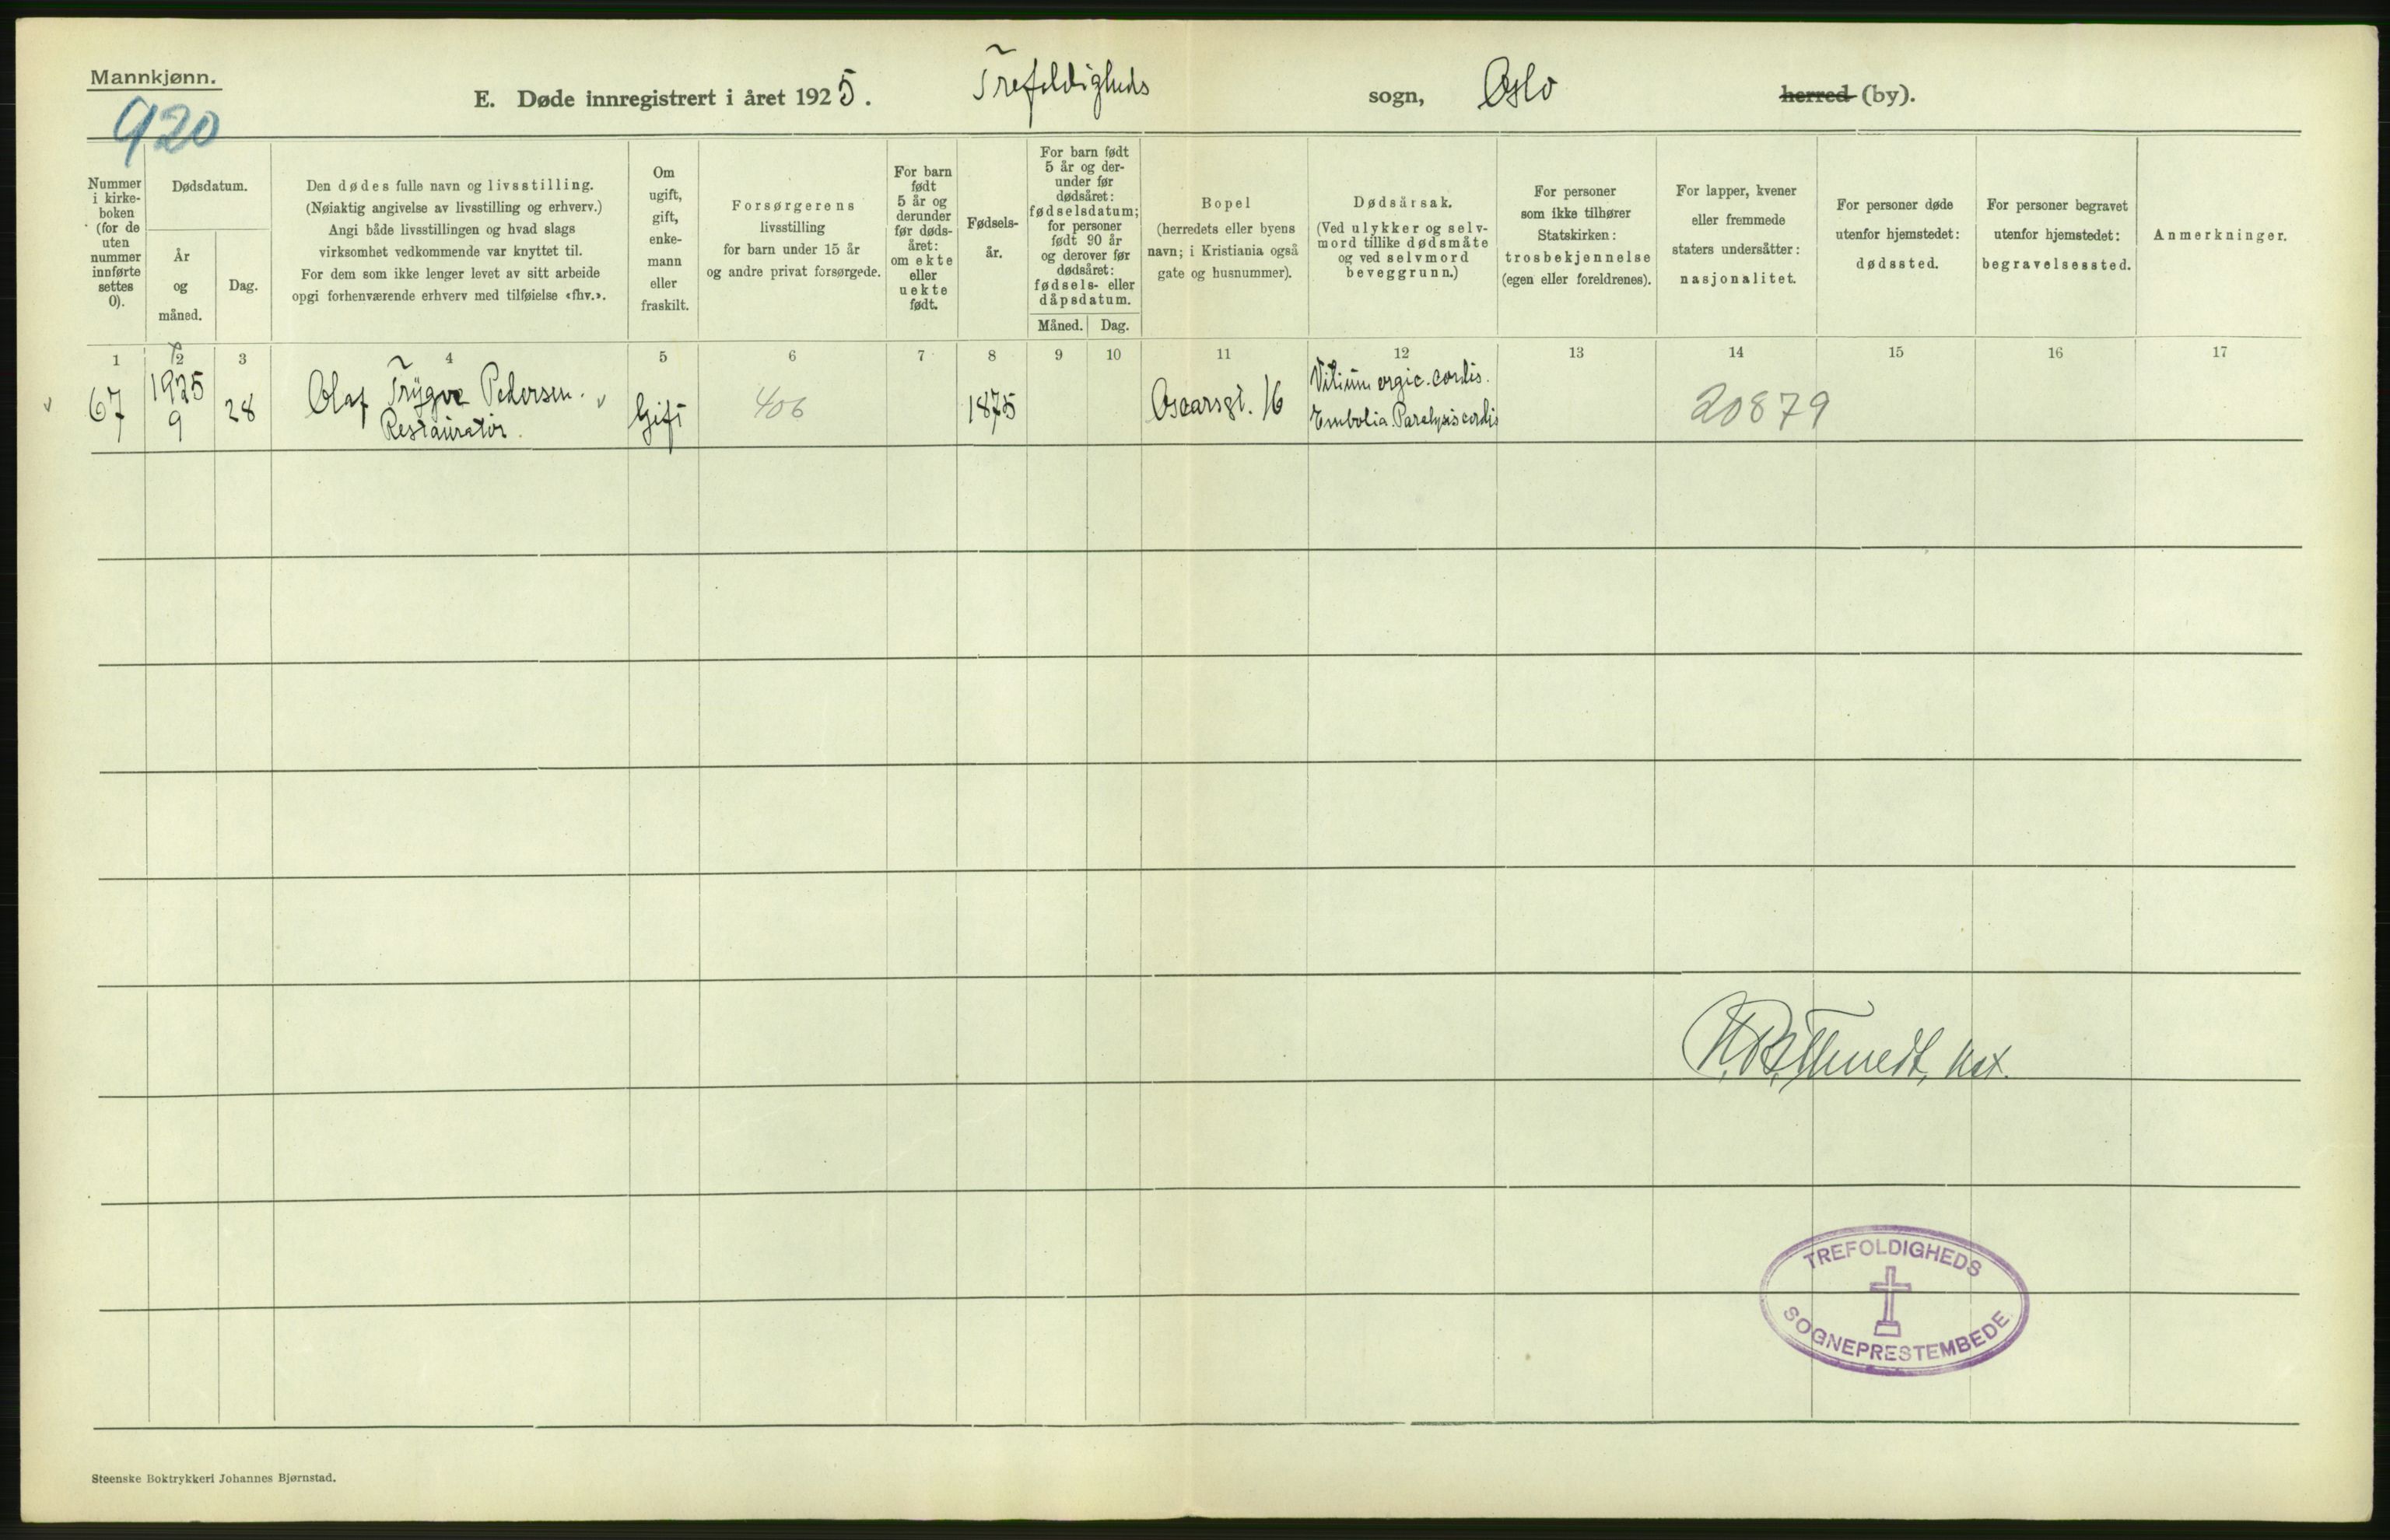 Mannkjønn.
920
E. Døde innregistrert i året 1925. Trefoldigheds sogn, Oslo herred (by).
Nummer
i kirke-
boken
(for de
uten
nummer
innførte
settes
0).
Dødsdatum.
År
og
måned.
Dag.
Den dødes fulle navn og livsstilling.
(Nøiaktig angivelse av livsstilling og erhverv.)
Angi både livsstillingen og hvad slags
virksomhet vedkommende var knyttet til.
For dem som ikke lenger levet av sitt arbeide
opgi forhenværende erhverv med tilføielse «fhv.».
Om
ugift,
gift,
enke-
mann
eller
fraskilt.
Forsørgerens
livsstilling
for barn under 15 år
og andre privat forsørgede.
For barn
født
5 år og
derunder
før døds-
året:
om ekte
eller
uekte
født.
Fødsels-
år.
For barn født
5 år og der-
under før
dødsåret:
fødselsdatum;
for personer
født 90 år
og derover før
dødsåret:
fødsels- eller
dåpsdatum.
Måned. Dag.
Bopel
(herredets eller byens
navn; i Kristiania også
gate og husnummer).
Dødsårsak.
(Ved ulykker og selv-
mord tillike dødsmåte
og ved selvmord
beveggrunn.)
For personer
som ikke tilhører
Statskirken:
trosbekjennelse
(egen eller foreldrenes).
For lapper, kvener
eller fremmede
staters undersåtter:
nasjonalitet.
For personer døde
utenfor hjemstedet:
dødssted.
For personer begravet
utenfor hjemstedet:
begravelsessted.
Anmerkninger.
1 2 3 4 5 6 7 8 9 10 11 12 13 14 15 16 17
67
1925
9
28
Olaf Trygve Pedersen.
Restauratør.
Gift
406
1875
Oscarsgt. 16
Vitium orgic. cordis.
Embolia. Paralysis cordis
20879
TREFOLDIGHEDS
SOGNEPRESTEMBEDE
Steenske Boktrykkeri Johannes Bjørnstad.